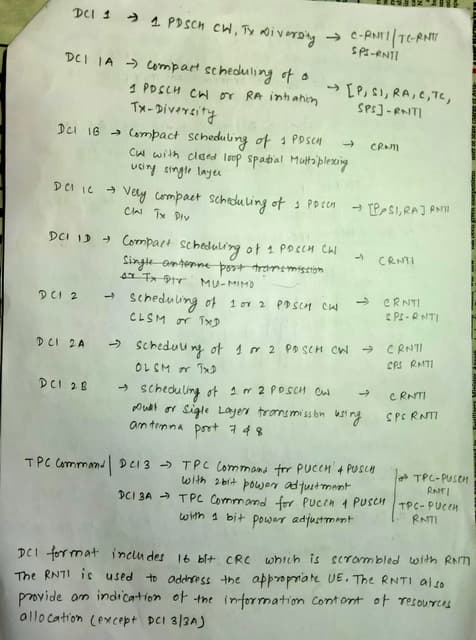 DCI 1 → 1 PDSCH CW, Tx Diversity → C-RNTI/TC-RNTI
SPS-RNTI
DCI 1A → Compact scheduling of a
1 PDSCH CW or RA intiation → [P, SI, RA, C, TC,
Tx-Diversity SPS]-RNTI
DCI 1B → Compact scheduling of 1 PDSCH → CRNTI
CW with closed loop spatial Multiplexing
using single layer
DCI 1C → Very compact scheduling of 1 PDSCH → [P, SI, RA] RNTI
CW Tx Div
DCI 1D → Compact scheduling of 1 PDSCH CW → CRNTI
Single antenna port transmission
or Tx Div MU-MIMO
DCI 2 → scheduling of 1 or 2 PDSCH CW → CRNTI
CLSM or TxD SPS-RNTI
DCI 2A → scheduling of 1 or 2 PDSCH CW → CRNTI
OLSM or TxD SPS RNTI
DCI 2B → scheduling of 1 or 2 PDSCH CW → CRNTI
Dual or Sigle Layer transmission using SPS RNTI
antenna port 7 & 8
TPC Command | DCI 3 → TPC Command for PUCCH & PUSCH
with 2bit power adjustment → TPC-PUSCH
RNTI
DCI 3A → TPC Command for PUCCH & PUSCH TPC-PUCCH
with 1 bit power adjustment RNTI
DCI format includes 16 bit CRC which is scrambled with RNTI
The RNTI is used to address the appropriate UE. The RNTI also
provide an indication of the information content of resources
allocation (except DCI 3/3A)